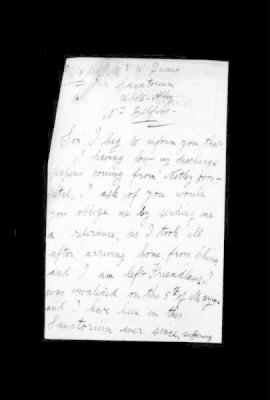 W. Dunne
Sanatorium
White-Abby
Nr Belfast
Sir, I beg to inform you that
I having lost my discharge
papers coming from Netley hos-
pital, I ask of you would
you oblige me by sending me
a referance, as I took ill
after arriving home from
and I am left Friendless, I
was invalided on the 5th of May
and I have been in this
Sanatorium ever since, suffering